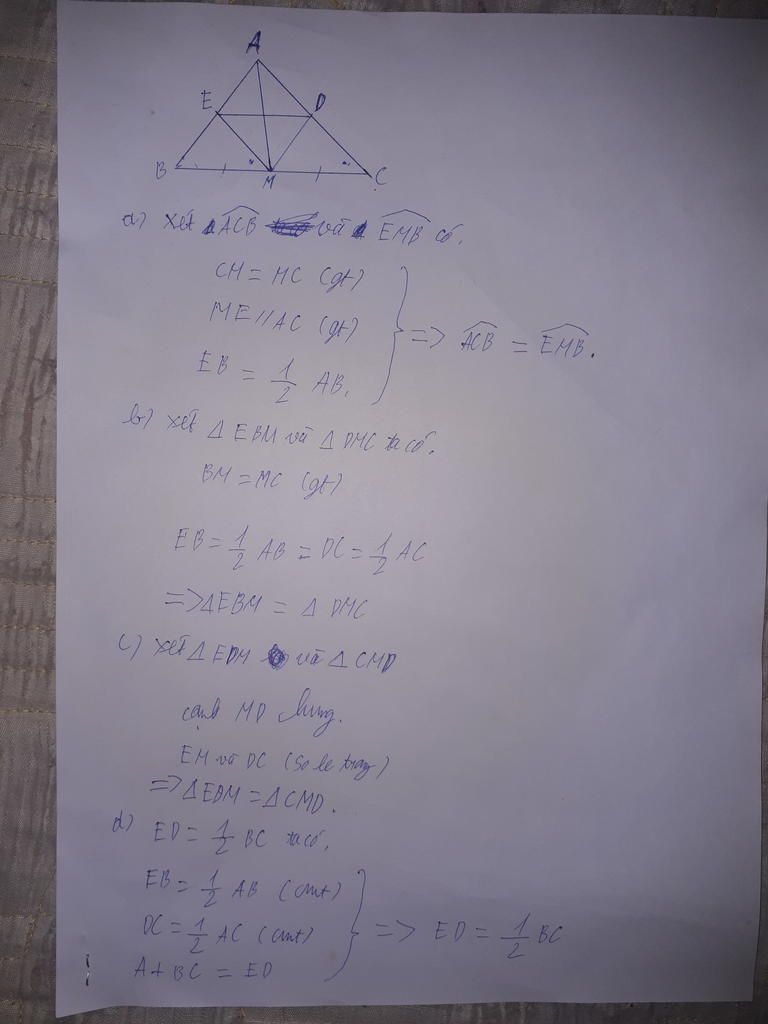 A
E D
B M C
a) xét ACB và EMB có.
CM = MC (gt)
ME // AC (gt)
EB = 1/2 AB.
=> ACB = EMB.
b) xét Δ EBM và Δ DMC ta có.
BM = MC (gt)
EB = 1/2 AB = DC = 1/2 AC
=> Δ EBM = Δ DMC
c) xét Δ EDM và Δ CMD
cạnh MD chung.
EM và DC (so le trong)
=> Δ EDM = Δ CMD.
d) ED = 1/2 BC ta có.
EB = 1/2 AB (cmt)
DC = 1/2 AC (cmt)
A + BC = ED
=> ED = 1/2 BC